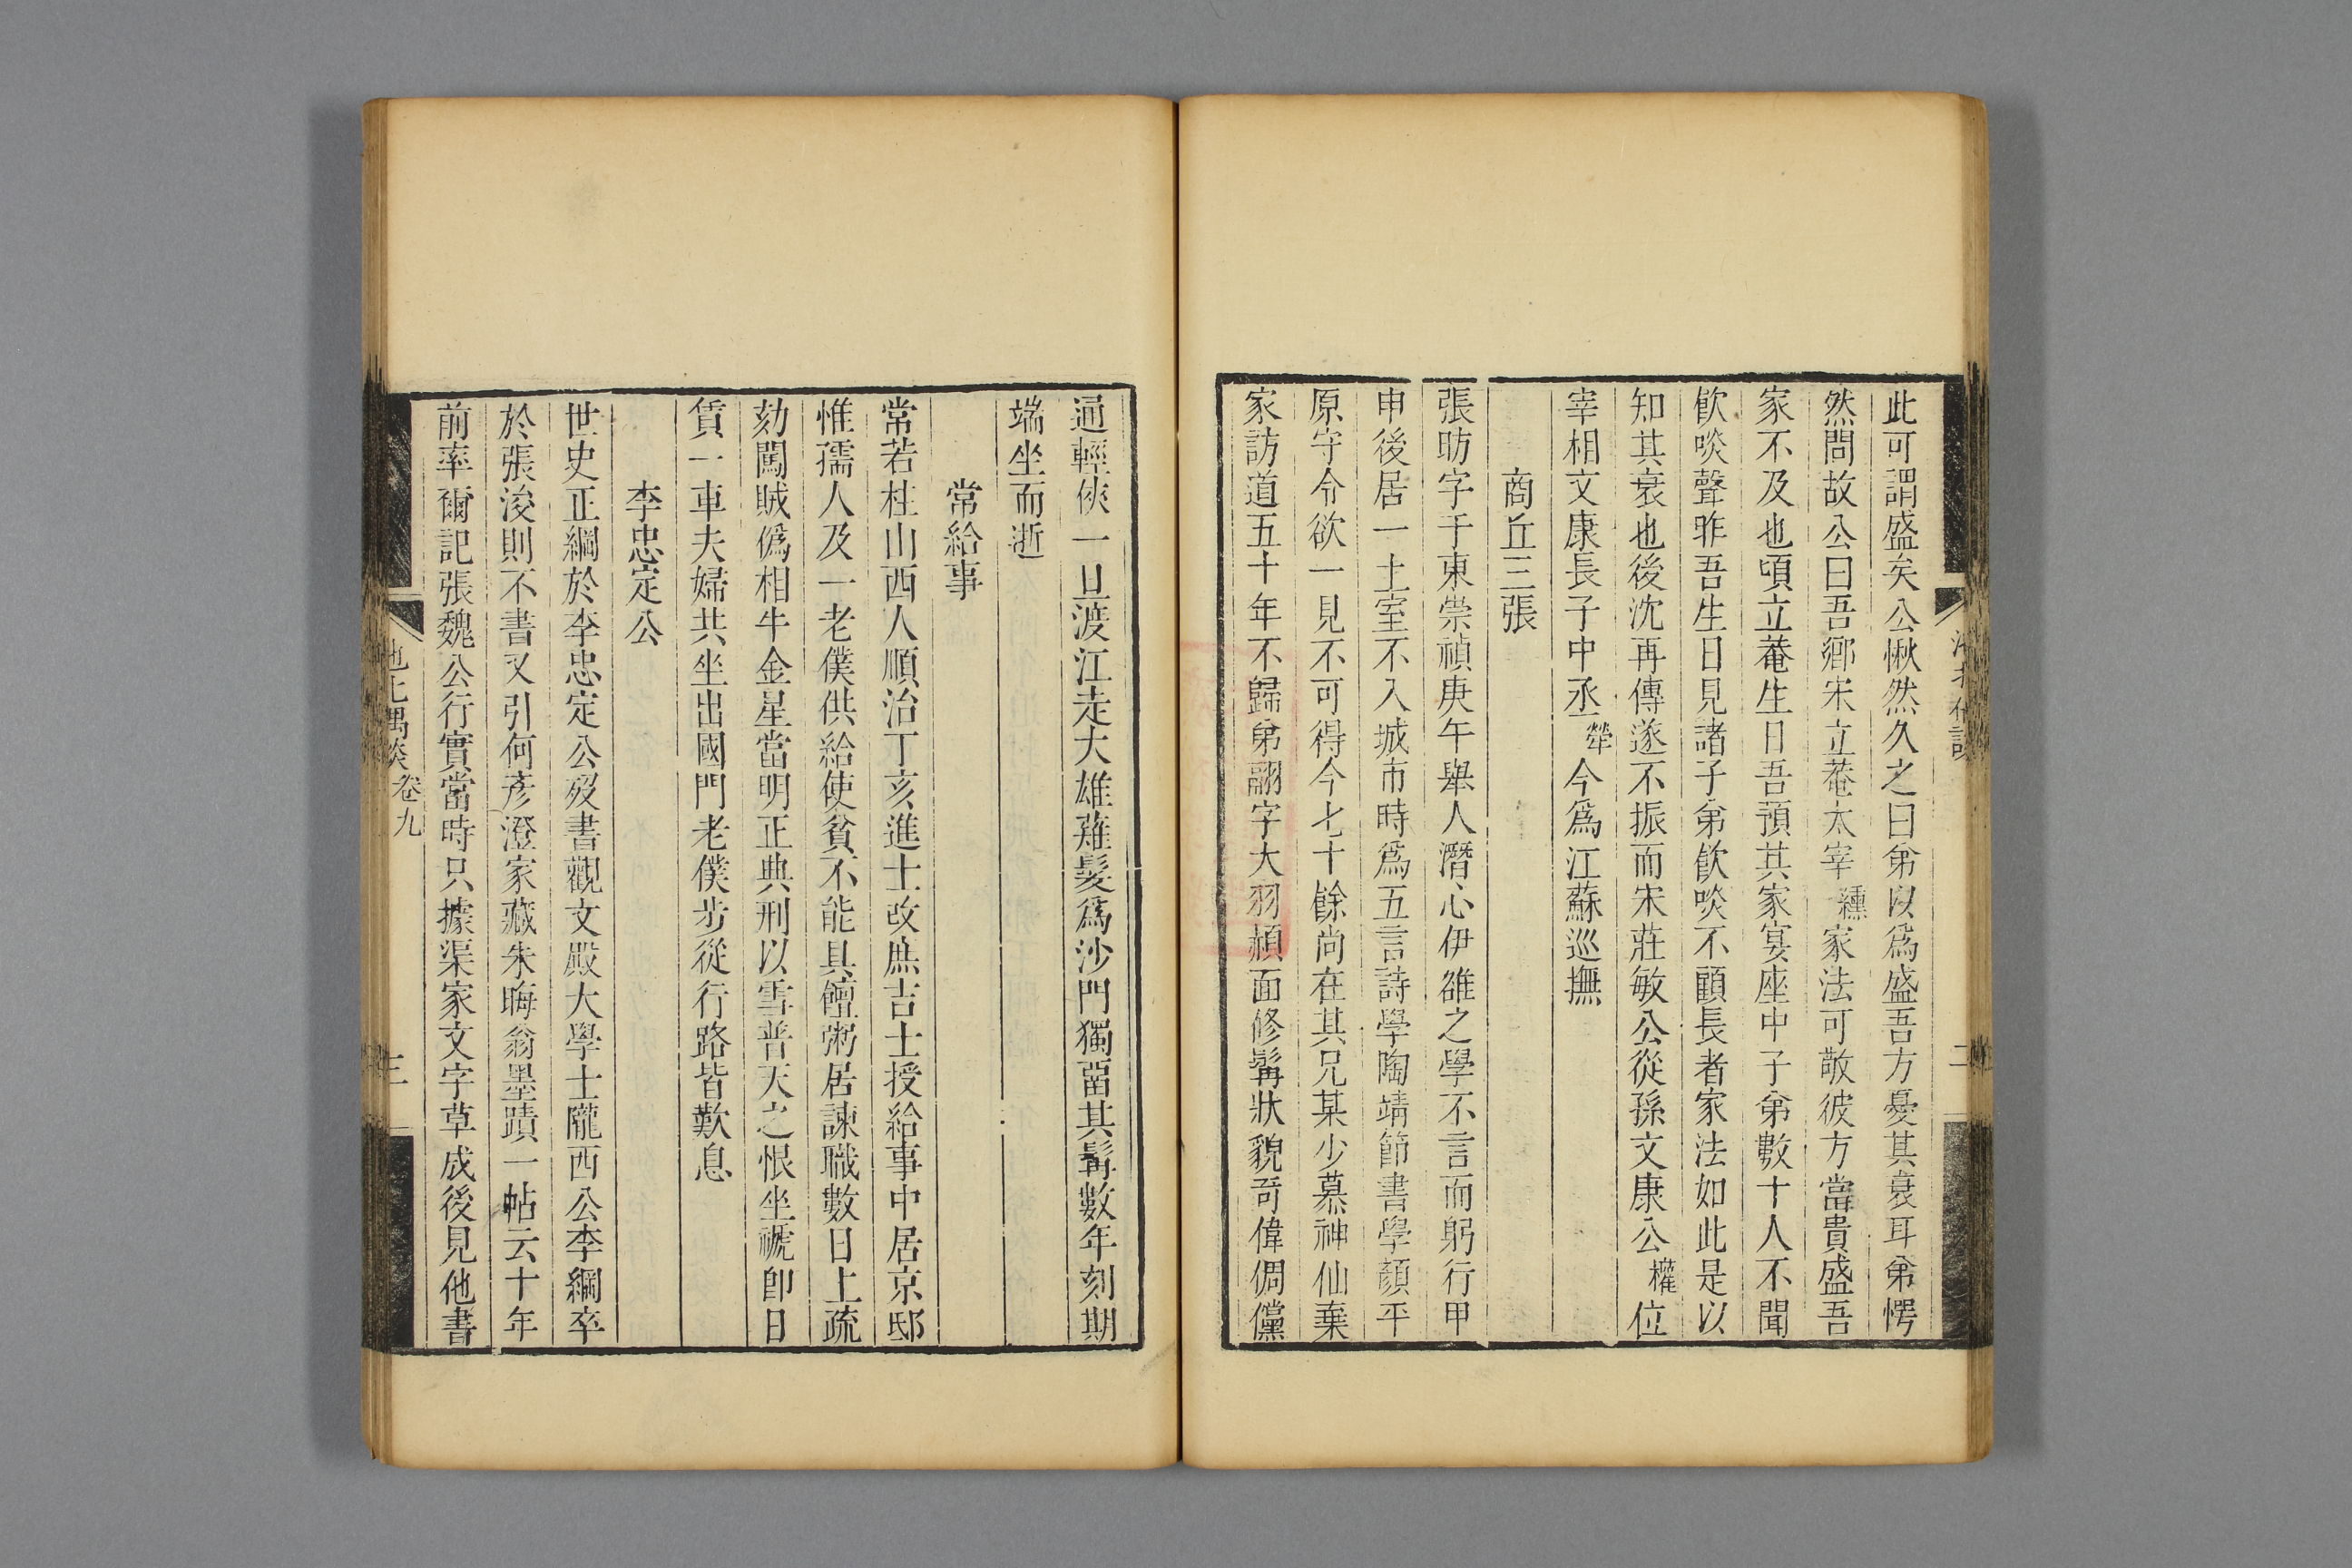 此可謂盛矣公愀然久之曰弟以爲盛吾方憂其衰耳弟愕
然問故公曰吾鄉宋立菴太宰纁家法可敬彼方當貴盛吾
家不及也頃立菴生日吾預其家宴座中子弟數十人不聞
飮啖聲昨吾生日見諸子弟飮啖不顧長者家法如此是以
知其衰也後沈再傳遂不振而宋莊敏公從孫文康公權位
宰相文康長子中丞犖今爲江蘇巡撫
商丘三張
張昉字于東崇禎庚午舉人潛心伊雒之學不言而躬行甲
申後居一土室不入城市時爲五言詩學陶靖節書學顏平
原守令欲一見不可得今七十餘尚在其兄某少慕神仙棄
家訪道五十年不歸弟翮字大羽頳面修髯狀貌奇偉倜儻
二
通輕俠一旦渡江走大雄薙髮爲沙門獨畱其髯數年刻期
端坐而逝
常給事
常若柱山西人順治丁亥進士改庶吉士授給事中居京邸
惟孺人及一老僕供給使貧不能具饘粥居諫職數日上疏
劾闖賊僞相牛金星當明正典刑以雪普天之恨坐褫卽日
賃一車夫婦共坐出國門老僕步從行路皆歎息
李忠定公
世史正綱於李忠定公歿書觀文殿大學士隴西公李綱卒
於張浚則不書又引何彥澄家藏朱晦翁墨蹟一帖云十年
前率爾記張魏公行實當時只據渠家文字草成後見他書
池上偶談 卷九